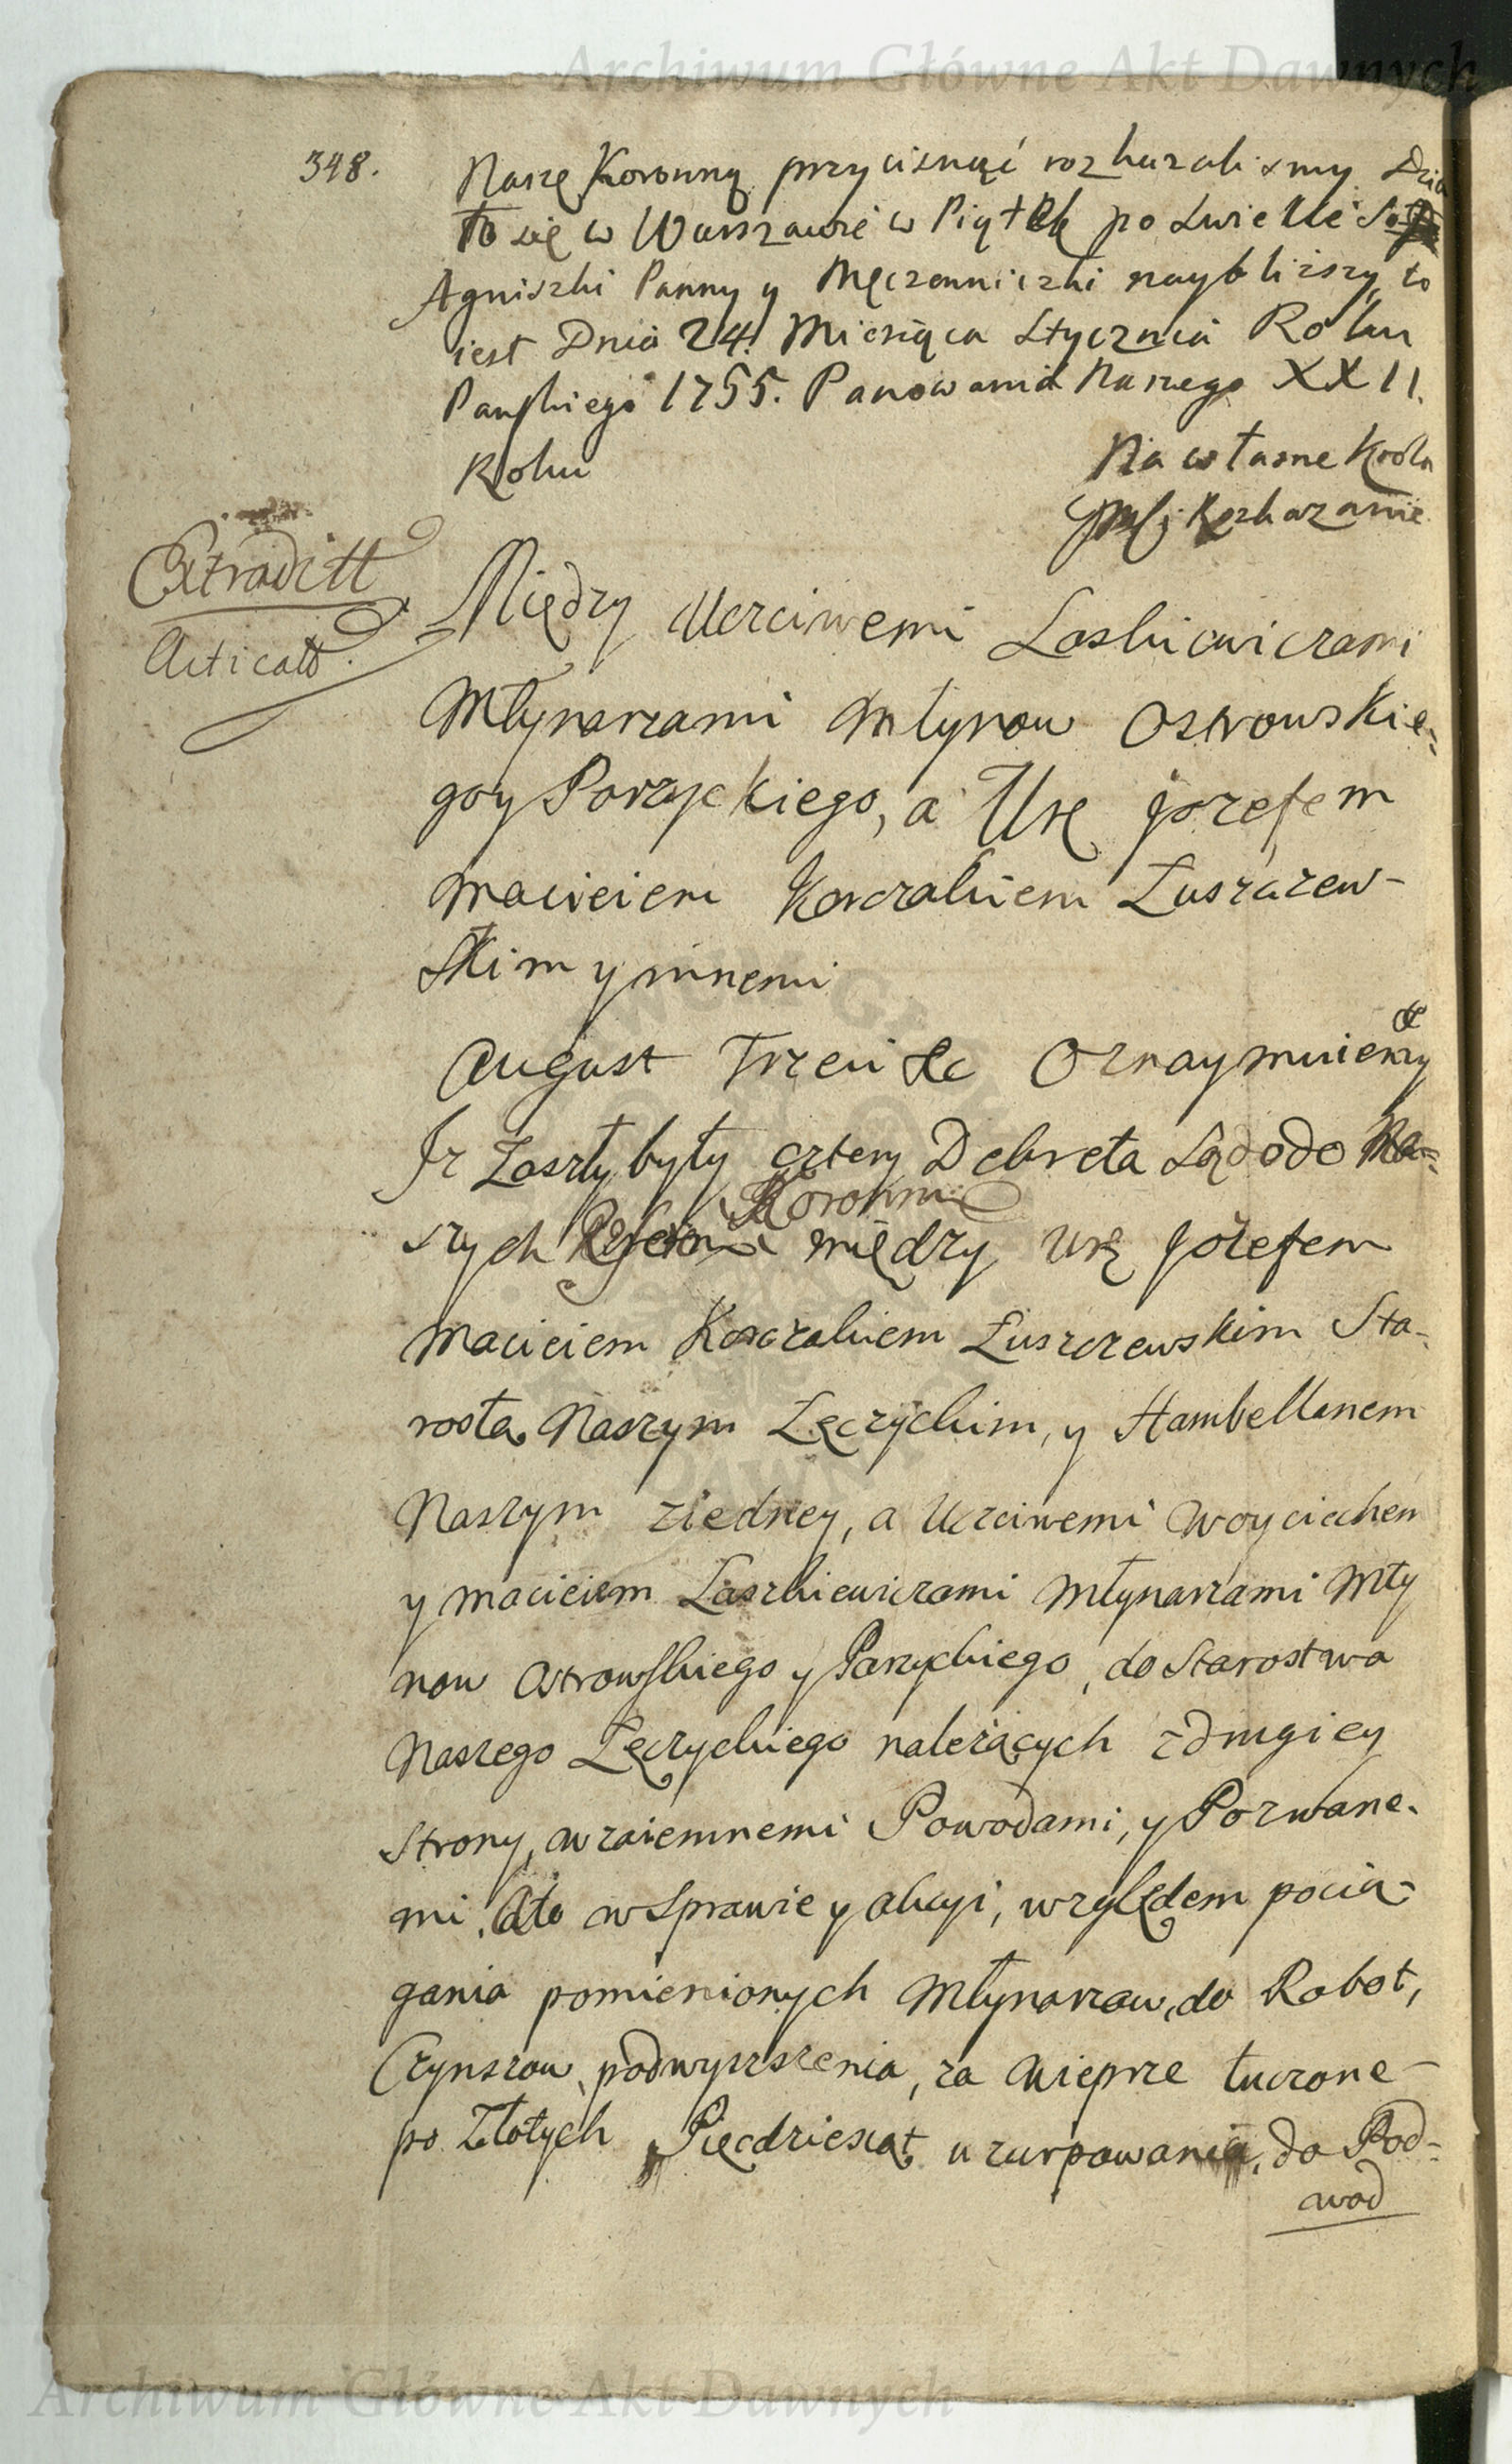 Archiwum Główne Akt Dawnych
348.
Naszę Koronną przycisnąć rozkazalismy. Dzia
ło się w Warszawie w Piątek po Swietie S
Agniszki Panny y Męczenniczki naybliższy, to
iest Dnia 24. Miesiąca Stycznia Roku
Panskiego 1755. Panowania Naszego XXII.
Roku
Na własne Krola
Jmsci Rozkazanie
Extraditt
Acticatt.
Między Uczciwemi Laskiewiczami
Młynarzami Młynow Ostrowskie=
go y Parzyckiego, a Ur. Jozefem
Macieiem Korczakiem Łuszczew-
Skim y innemi
August Trzeci &c Oznaymuiemy
Iz Zaszły były cztery Dekreta Sądodo Na=
szych Koronne między Ur. Jozefem
Macieiem Korczakiem Łuszczewskim Sta-
rostą Naszym Łęczyckim, y Hambellanem
Naszym ziedney, a Uczciwemi Woyciechem
y Macieiem Laszkiewiczami Młynarzami Mły
now Ostrowskiego y Parzyckiego, do Starostwa
Naszego Łęczyckiego należących z drugiey
Strony, wzaiemnemi Powodami, y Pozwane-
mi. Ato w Sprawie y Akcyi, względem pocią-
gania pomienionych Młynarzow, do Robot,
Czynszow, podwyszszenia, za Wieprze tuczone -
po Złotych Pięcdziesiąt uzurpowania, do Pod-
wod
Archiwum Główne Akt Dawnych